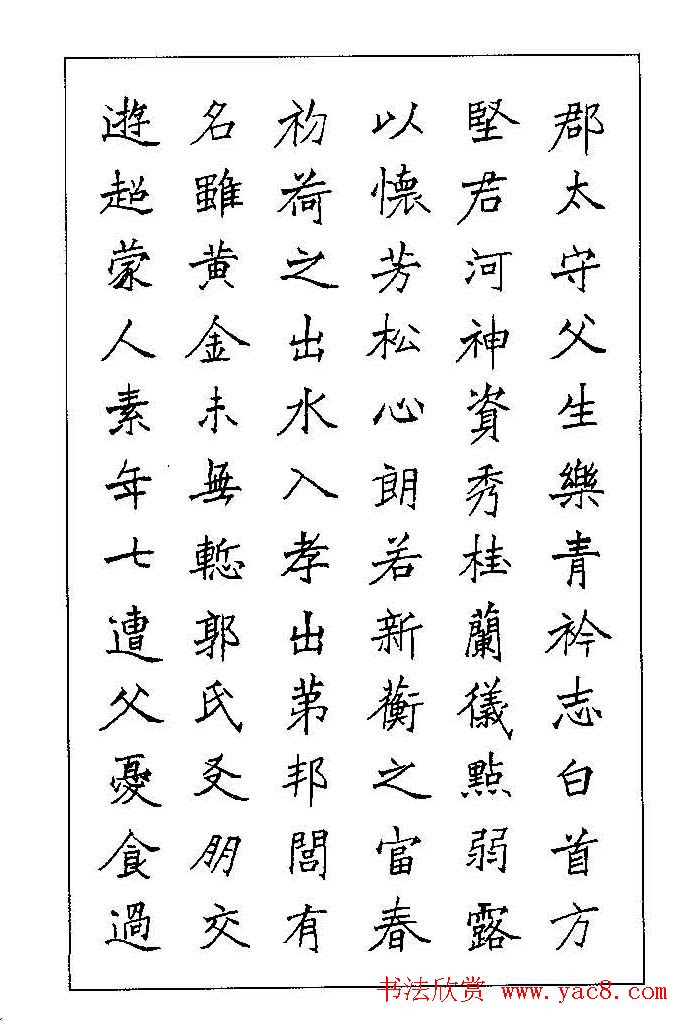 郡太守父生樂青衿志白首方
堅君河神資秀桂蘭儀點弱露
以懷芳松心朗若新蘅之富春
初荷之出水入孝出苐邦閭有
名雖黃金未無慙郭氏友朋交
遊超蒙人素年七遭父憂食過
书法欣赏 www.yac8.com